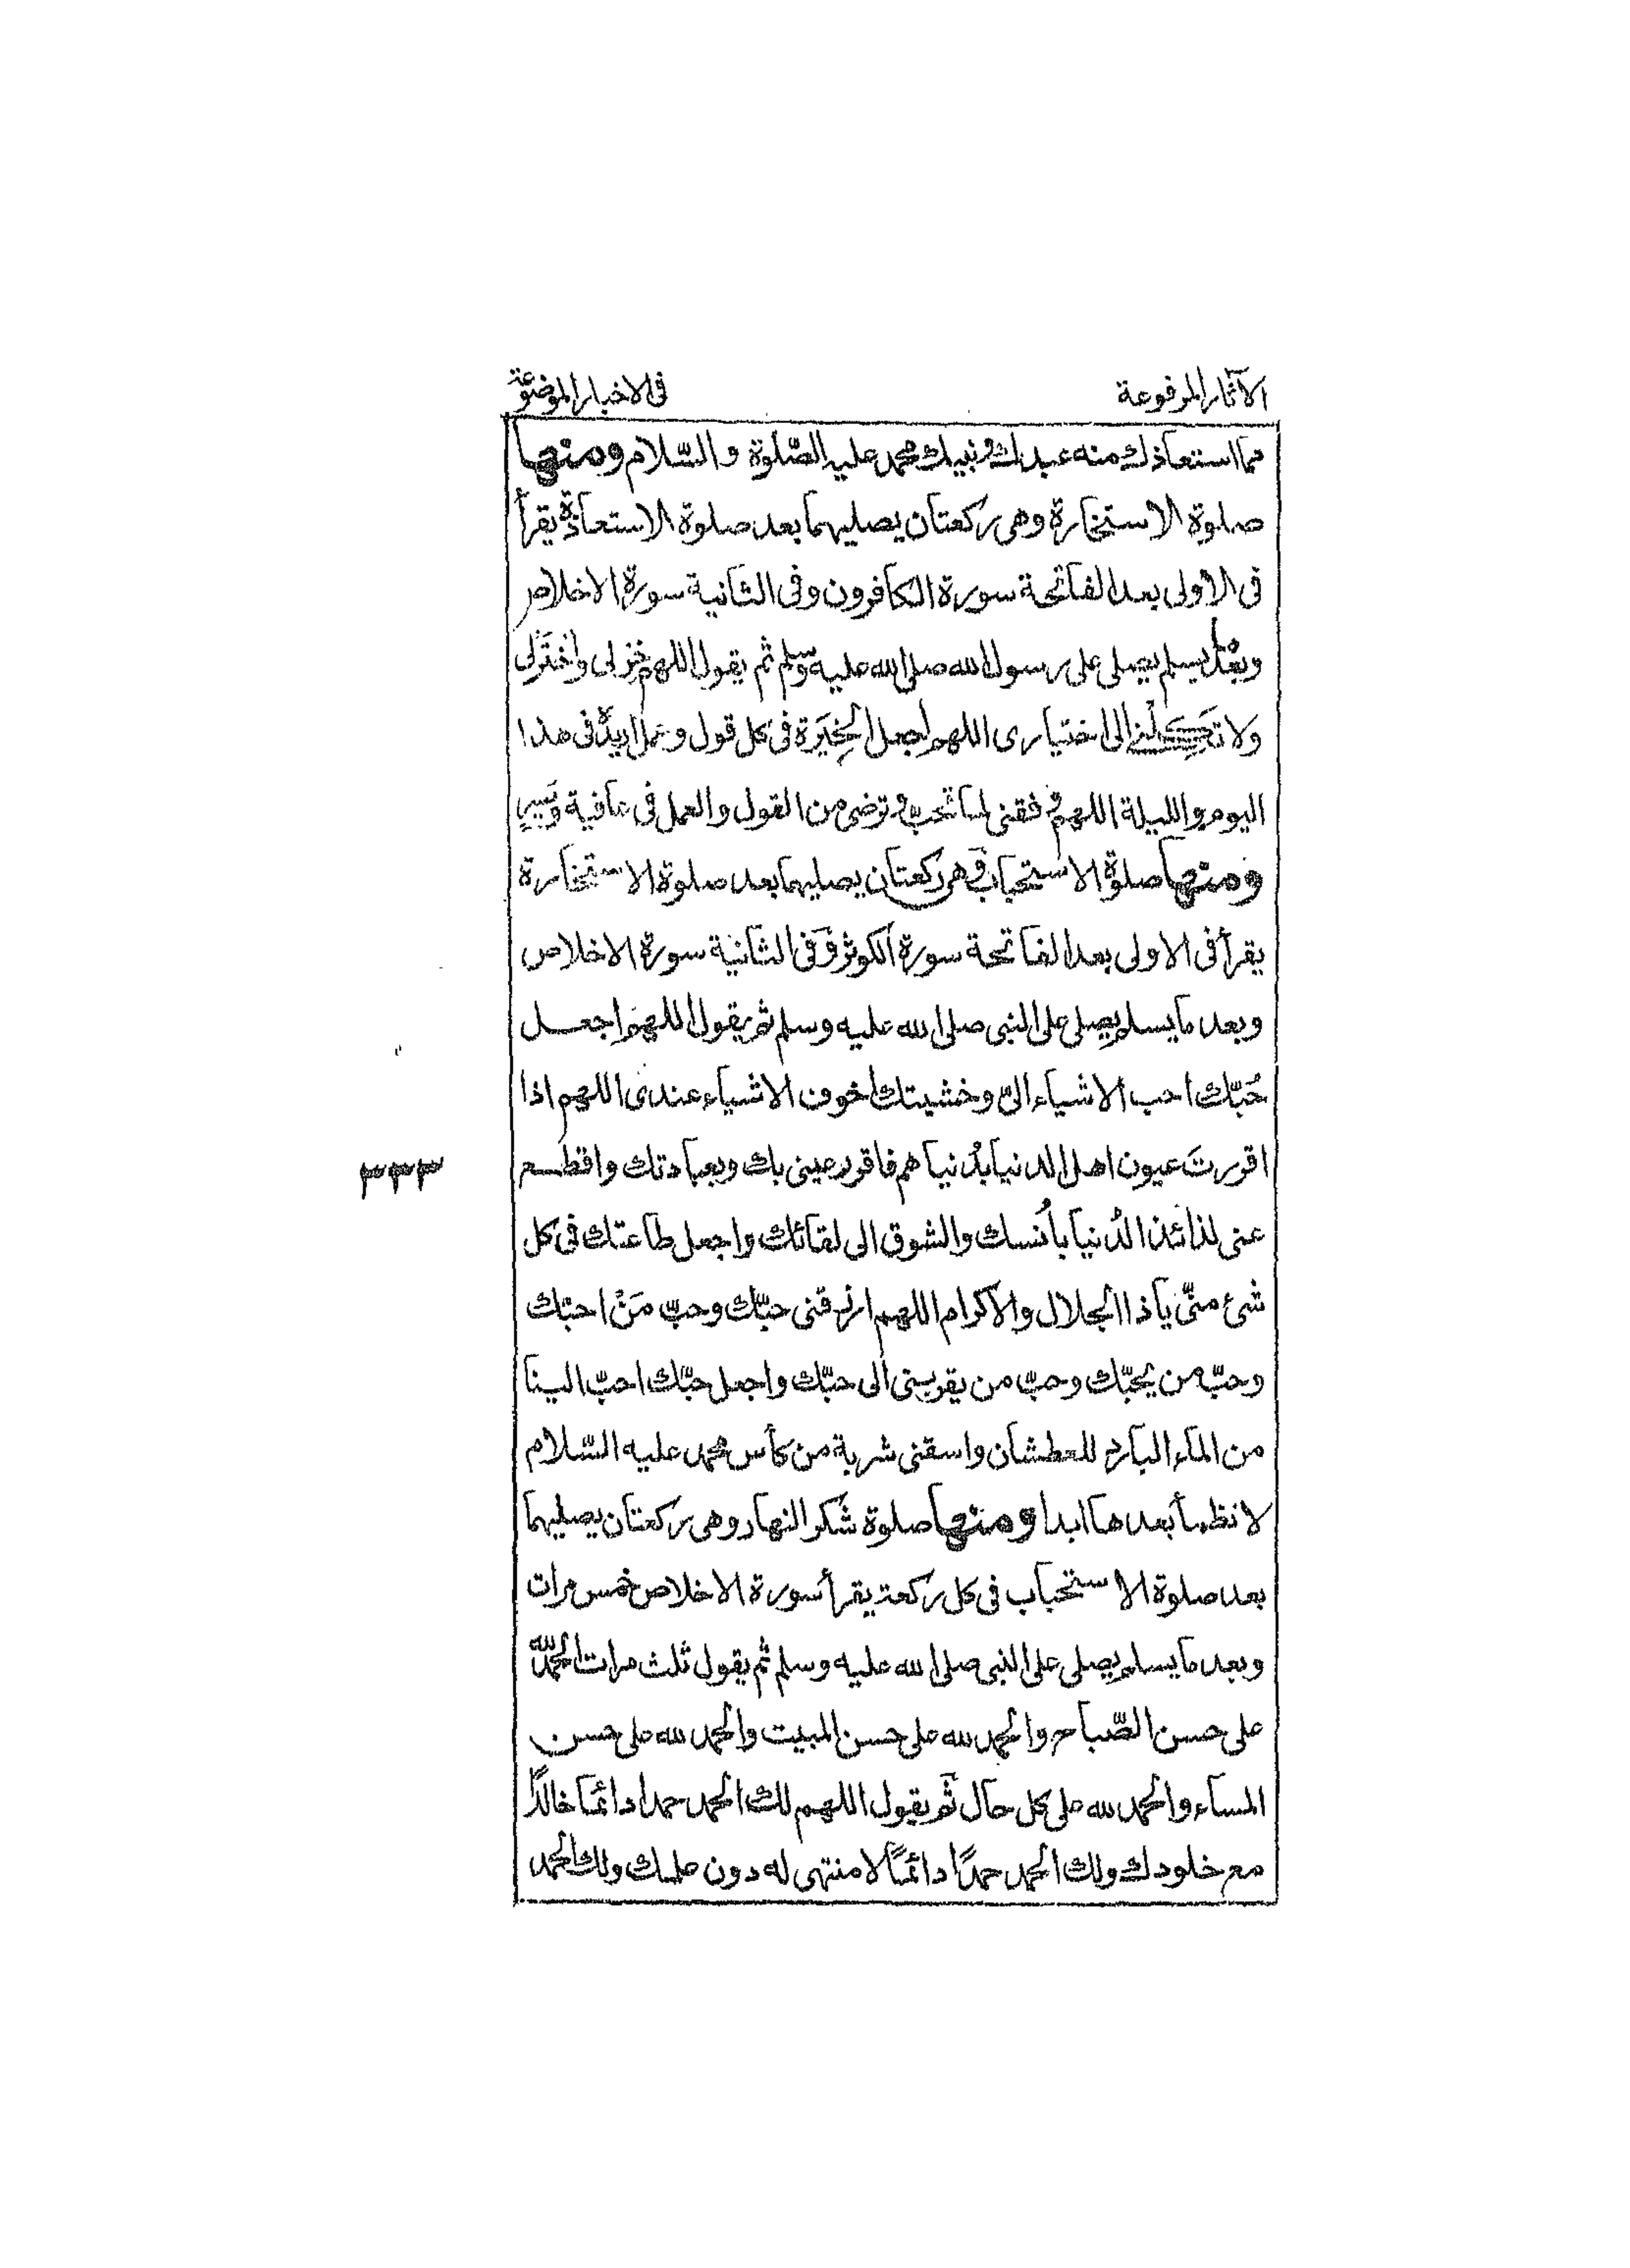 الآثار المرفوعة
فى الاخبار الموضوعة
مما استعاذك منه عبدك ونبيك محمد عليه الصّلوة والسّلام ومنها
صلوة الاستخارة وهى ركعتان يصليهما بعد صلوة الاستعاذة يقرأ
فى الاولى بعد الفاتحة سورة الكافرون وفى الثانية سورة الاخلاص
وبعد يسلم يصلى على رسول الله صلى الله عليه وسلم ثم يقول اللهم خِرْ لى واخْتَرْ لى
ولا تكلنى الى اختيارى اللهم اجعل الخِيَرة فى كل قول وعمل اريده فى هذا
اليوم والليلة اللهم وفقنى لما تحبّ وترضى من القول والعمل فى عافية ويسر
ومنها صلوة الاستحباب وهى ركعتان يصليهما بعد صلوة الاستخارة
يقرأ فى الاولى بعد الفاتحة سورة الكوثر وفى الثانية سورة الاخلاص
وبعد ما يسلم يصلى على النبى صلى الله عليه وسلم ثم يقول اللهم اجعل
حُبّك احب الاشياء الىّ وخشيتك اخوف الاشياء عندى اللهم اذا
اقررتَ عيون اهل الدنيا بدُنياهم فاقرر عينى بك وبعبادتك واقطع
٣٣٣
عنى لذائذ الدُنيا بأُنسك والشوق الى لقائك واجعل طاعتك فى كل
شئ منّى ياذا الجلال والاكرام اللهم ارزقنى حبّك وحبّ مَنْ احبّك
وحبّ من يحبّك وحبّ من يقربنى الى حبّك واجعل حبّك احبّ الينا
من الماء البارد للعطشان واسقنى شربة من كأس محمد عليه السّلام
لا نظمأ بعدها ابدا ومنها صلوة شكر النهار وهى ركعتان يصليهما
بعد صلوة الاستحباب فى كل ركعة يقرأ سورة الاخلاص خمس مرات
وبعد ما يسلم يصلى على النبى صلى الله عليه وسلم ثم يقول ثلث مرات الحمد لله
على حسن الصّباح والحمد لله على حسن المبيت والحمد لله على حسن
المساء والحمد لله على كل حال ثم يقول اللهم لك الحمد حمدا دائما خالدًا
مع خلودك ولك الحمد حمدًا دائمًا لا منتهى له دون علمك ولك الحمد